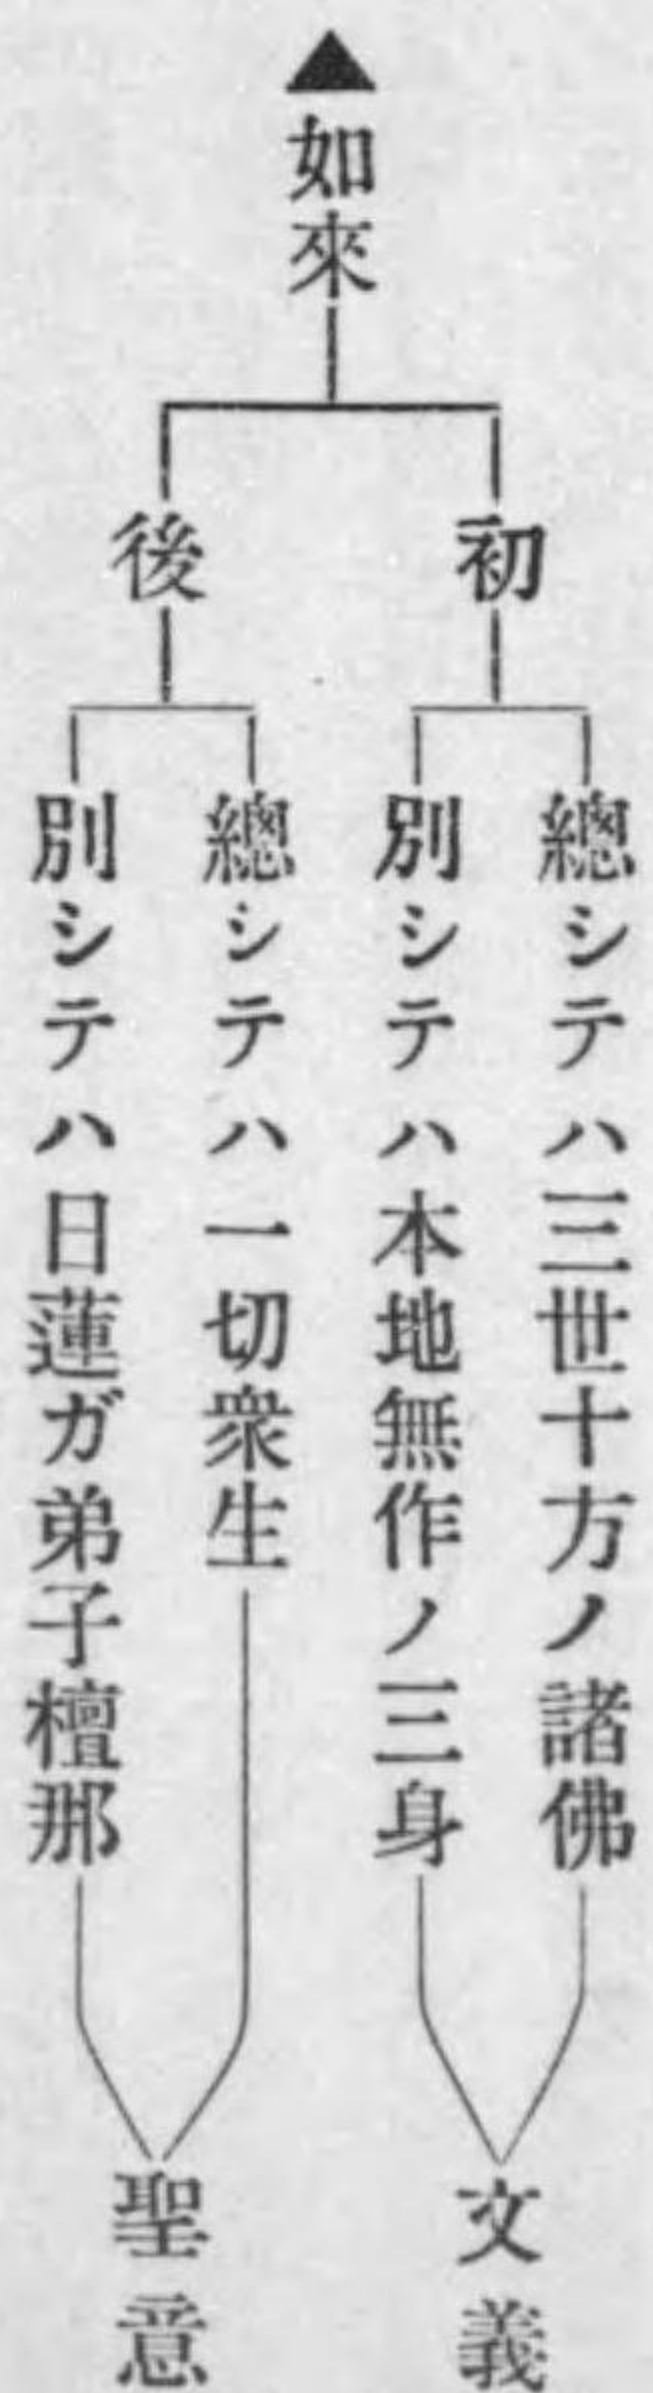 ▲如來
初
總シテハ三世十方ノ諸佛
別シテハ本地無作ノ三身
文義
後
總シテハ一切衆生
別シテハ日蓮ガ弟子檀那
聖意